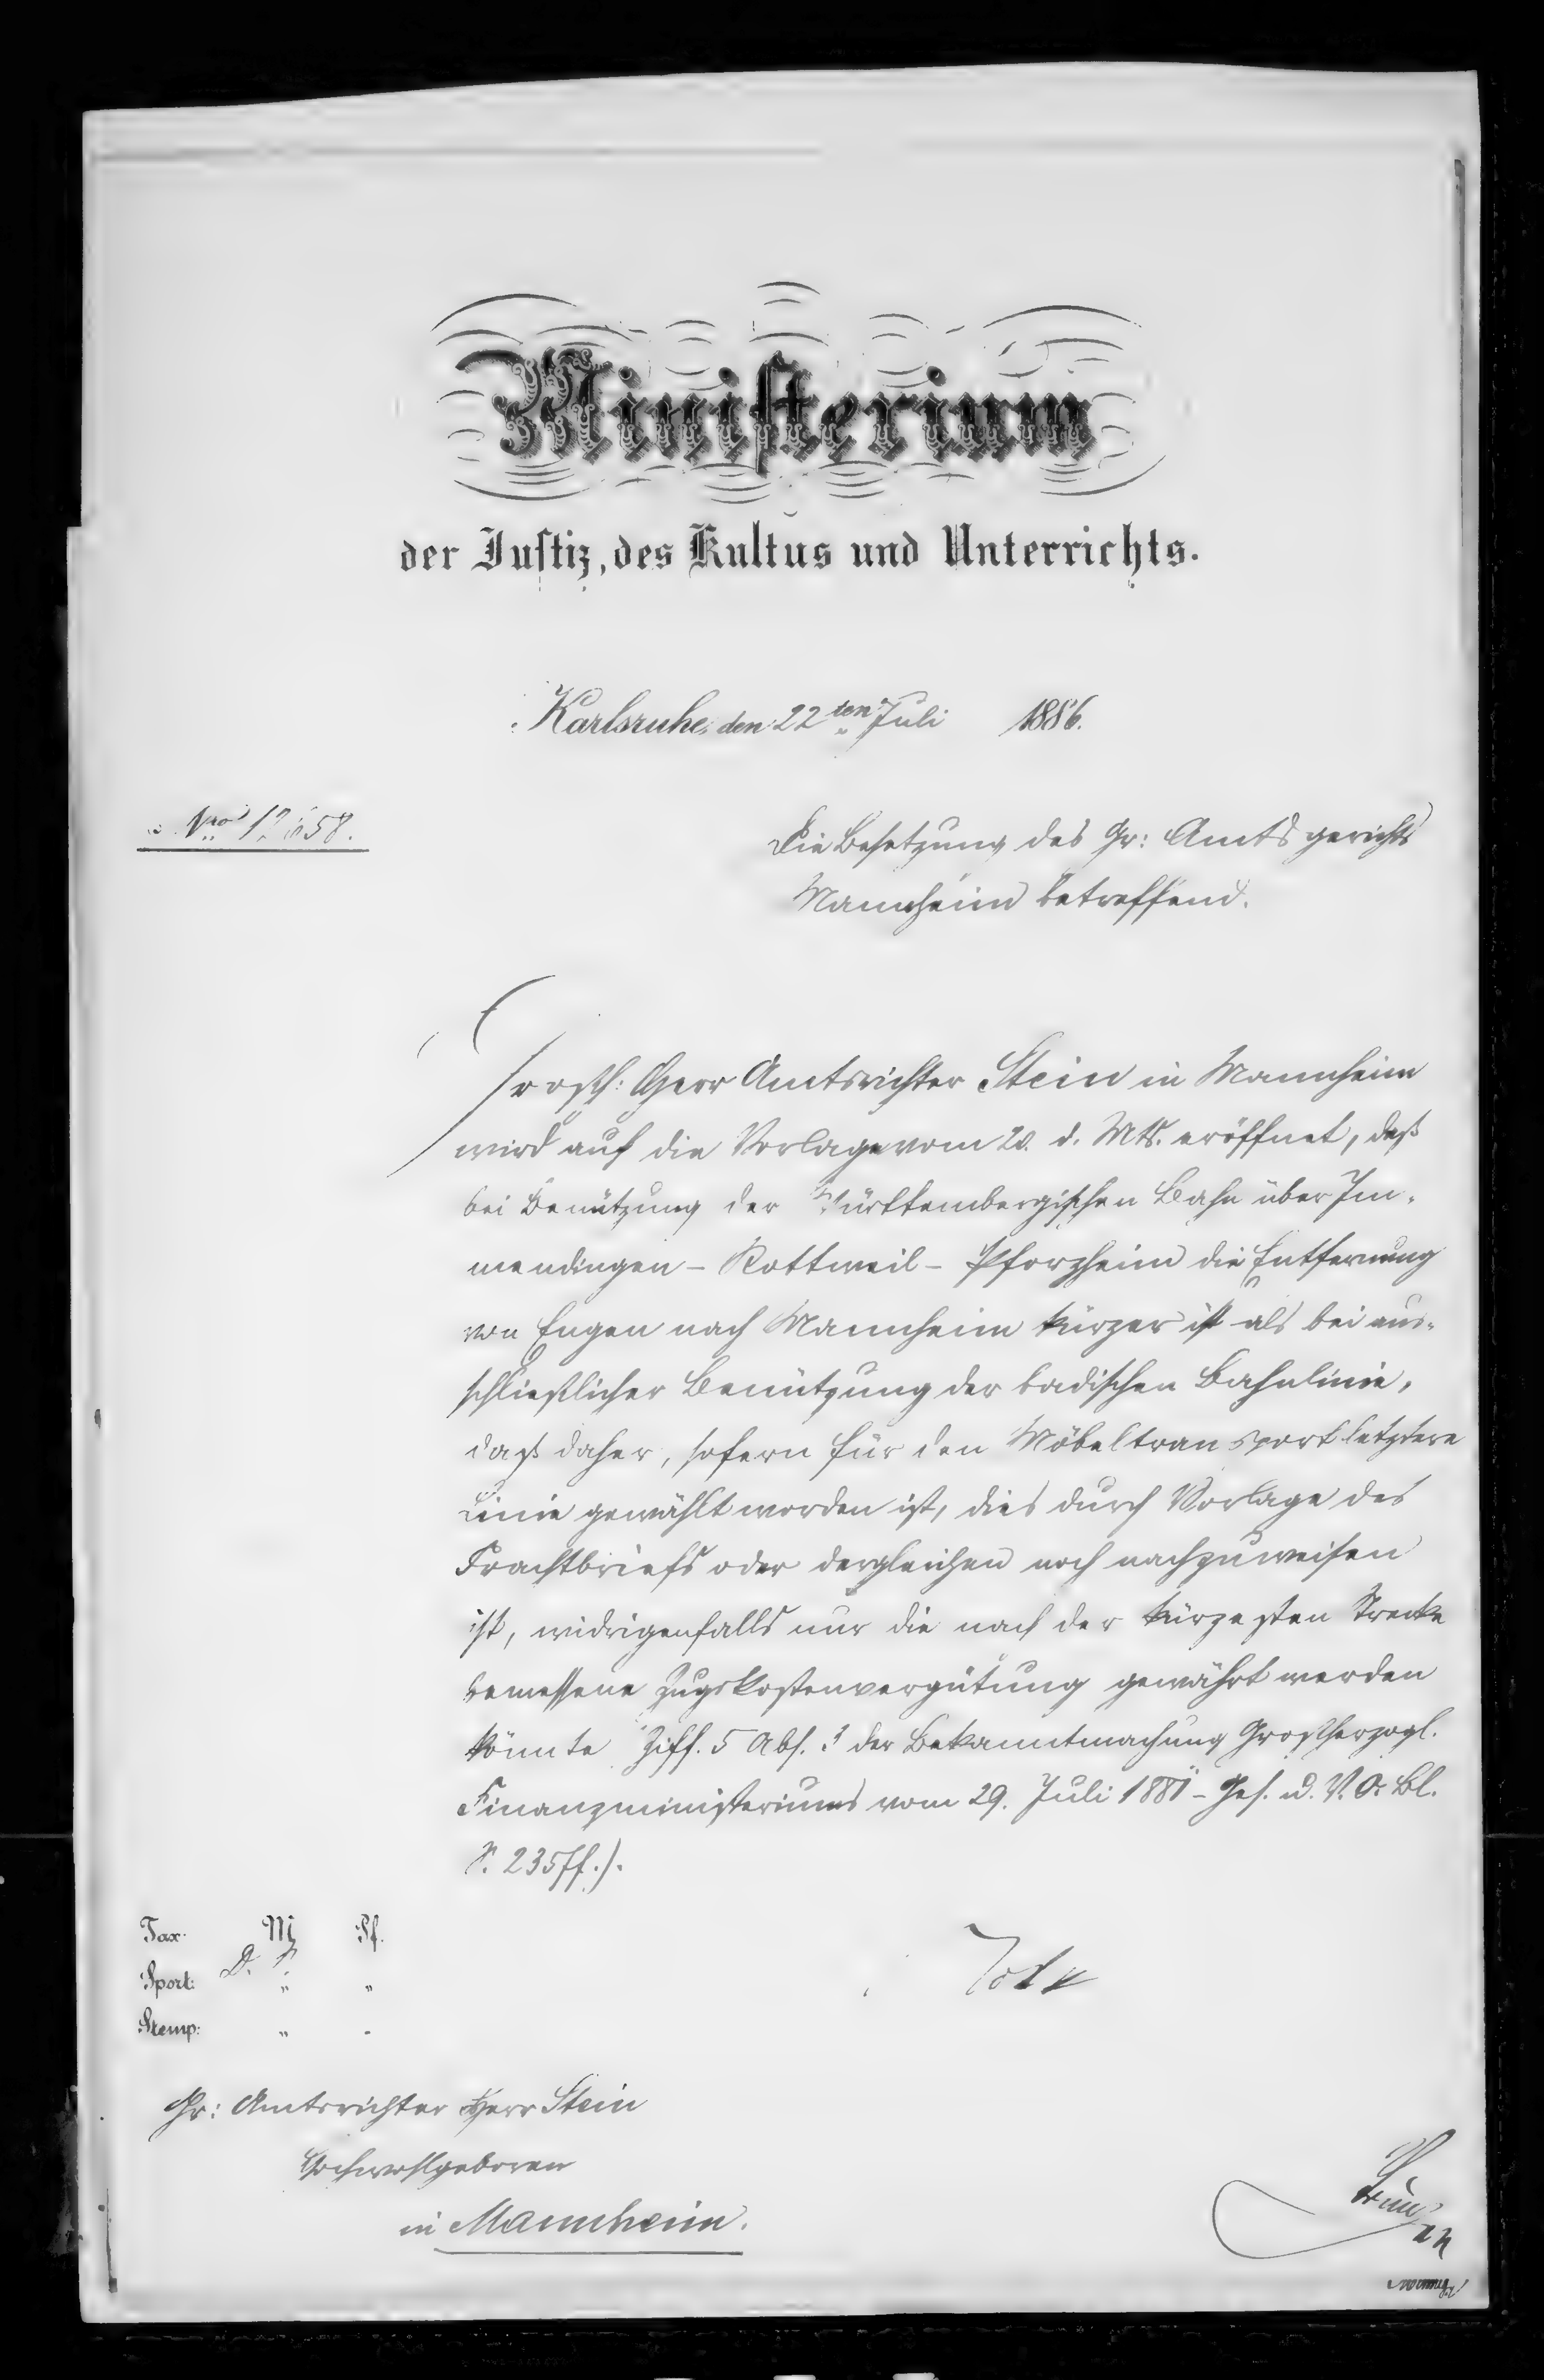 Ministerium
der Justiz, des Kultus und Unterrichts.
Karlsruhe, den 22ten Juli 1886.
Nro
Die Besetzung des Gr: Amtsgerichts
Mannheim betreffend.
Großh: Herr Amtsrichter Stein in Mannheim
wird auf die Vorlage vom 20. d. Mts. eröffnet, daß
bei Benützung der Württembergischen Bahn über Im-
mendingen - Rottweil - Pforzheim die Entfernung
von Engen nach Mannheim kürzer ist als bei aus-
schließlicher Benützung der badischen Bahnlinie,
daß daher, sofern für den Möbeltransport letztere
Linie gewählt worden ist, dies durch Vorlage des
Frachtbriefs oder dergleichen noch nachzuweisen
ist, widrigenfalls nur die nach der kürzesten Strecke
bemessene Zugskostenvergütung gewährt werden
könnte Ziff. 5 Abs. 3 der Bekanntmachung Großherzogl.
Finanzministeriums vom 29. Juli 1881 - Ges. u. V. O. Bl.
S. 235 ff.).
Tax: M Pf.
Sport: D. S. " "
Stemp: " "
Gr: Amtsrichter Herr Stein
Hochwohlgeboren
in Mannheim.